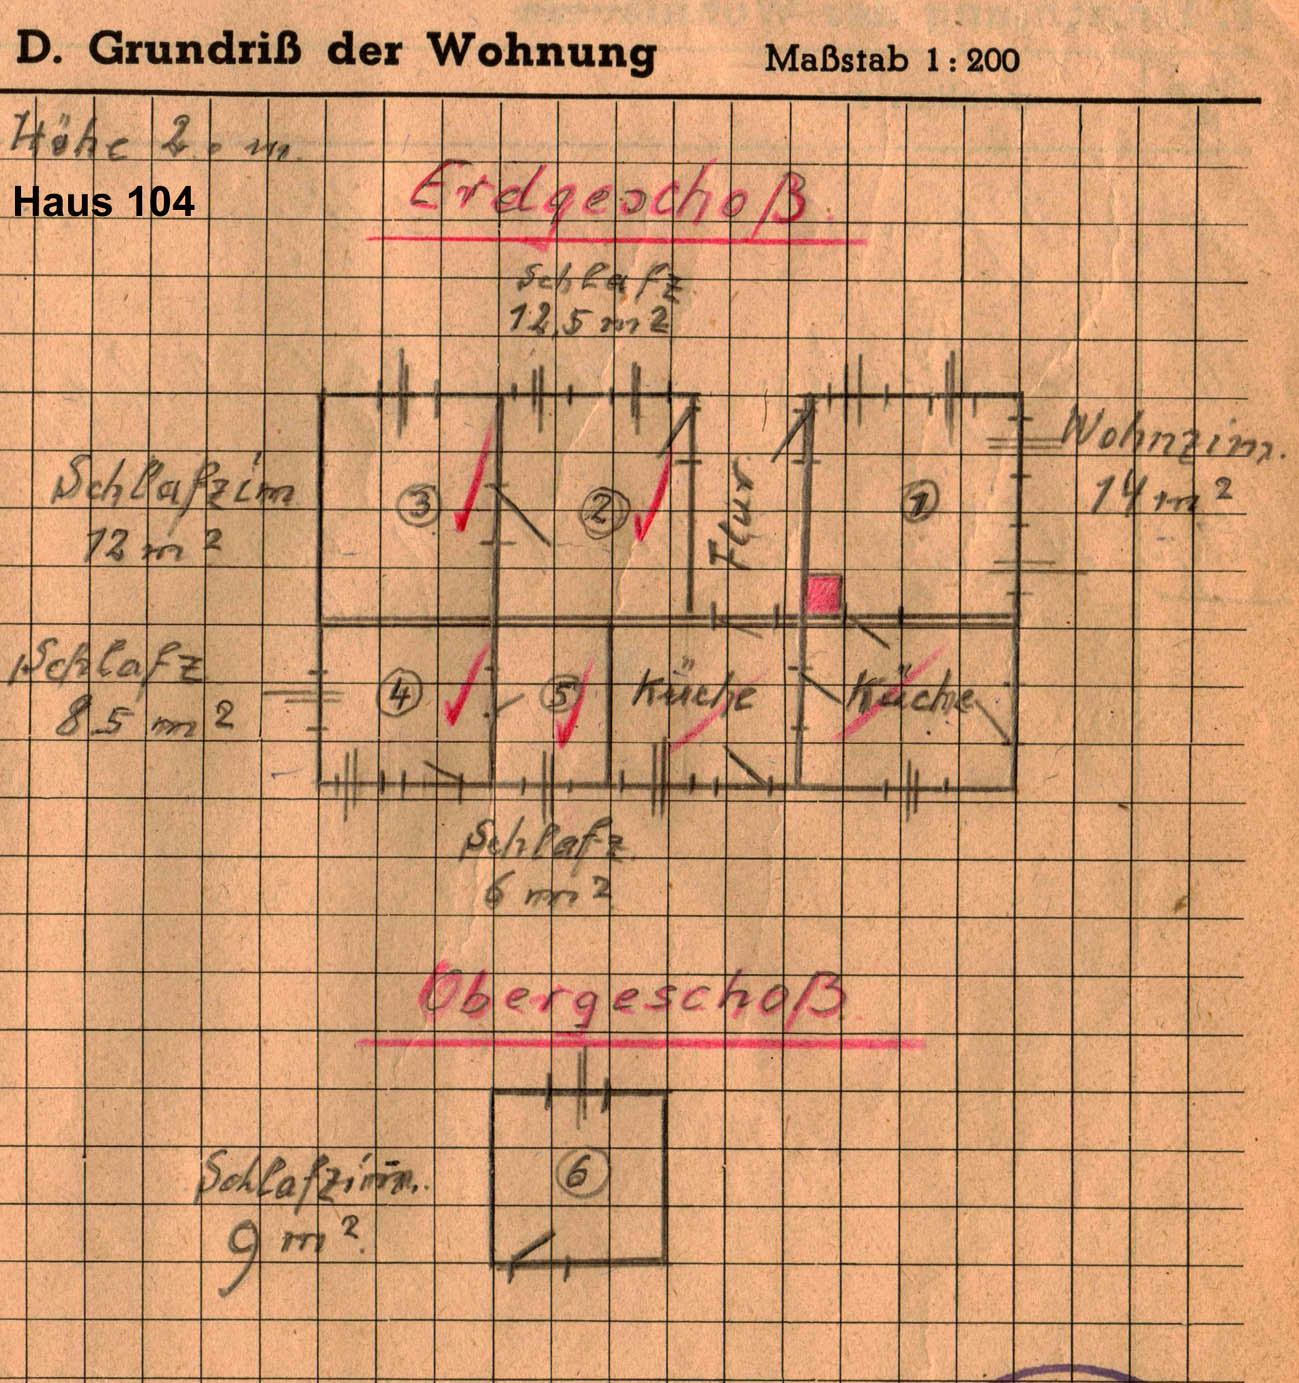 D. Grundriß der Wohnung Maßstab 1:200
Höhe 2. m.
Haus 104
Erdgeschoß.
Schlafz
12,5 m2
Wohnzim.
14 m2
Schlafzim
12 m2
3
2
Flur.
1
Schlafz
8.5 m2
4
5
Küche
Küche
Schlafz
6 m2
Obergeschoß
6
Schlafzim.
9 m2.